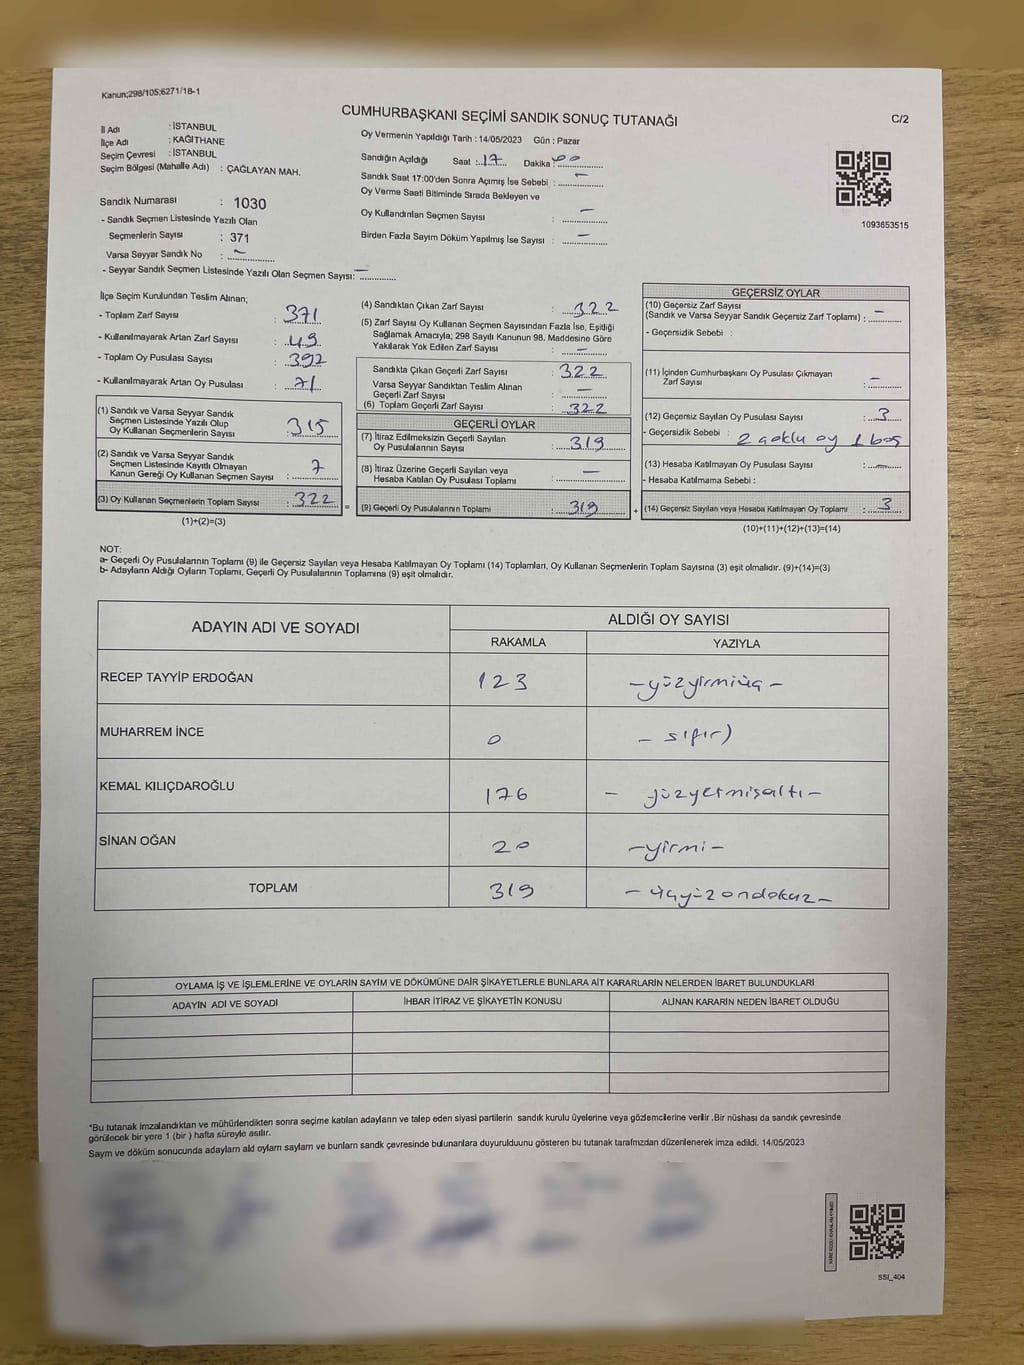 Kanun;298/105;6271/18-1
CUMHURBAŞKANI SEÇİMİ SANDIK SONUÇ TUTANAĞI
C/2
İl Adı : İSTANBUL
İlçe Adı : KAĞITHANE
Seçim Çevresi : İSTANBUL
Seçim Bölgesi (Mahalle Adı) : ÇAĞLAYAN MAH.
Sandık Numarası : 1030
- Sandık Seçmen Listesinde Yazılı Olan
Seçmenlerin Sayısı : 371
Varsa Seyyar Sandık No : —
- Seyyar Sandık Seçmen Listesinde Yazılı Olan Seçmen Sayısı: —
Oy Vermenin Yapıldığı Tarih : 14/05/2023 Gün : Pazar
Sandığın Açıldığı Saat : 17 Dakika : 00
Sandık Saat 17:00'den Sonra Açımış İse Sebebi : —
Oy Verme Saati Bitiminde Sırada Bekleyen ve
Oy Kullandırılan Seçmen Sayısı : —
Birden Fazla Sayım Döküm Yapılmış İse Sayısı : —
1093653515
İlçe Seçim Kurulundan Teslim Alınan;
- Toplam Zarf Sayısı : 371
- Kullanılmayarak Artan Zarf Sayısı : 49
- Toplam Oy Pusulası Sayısı : 392
- Kullanılmayarak Artan Oy Pusulası : 71
(1) Sandık ve Varsa Seyyar Sandık
Seçmen Listesinde Yazılı Olup
Oy Kullanan Seçmenlerin Sayısı : 315
(2) Sandık ve Varsa Seyyar Sandık
Seçmen Listesinde Kayıtlı Olmayan
Kanun Gereği Oy Kullanan Seçmen Sayısı : 7
(3) Oy Kullanan Seçmenlerin Toplam Sayısı : 322
(1)+(2)=(3)
(4) Sandıktan Çıkan Zarf Sayısı : 322
(5) Zarf Sayısı Oy Kullanan Seçmen Sayısından Fazla İse, Eşitliği
Sağlamak Amacıyla; 298 Sayılı Kanunun 98. Maddesine Göre
Yakılarak Yok Edilen Zarf Sayısı : —
Sandıkta Çıkan Geçerli Zarf Sayısı : 322
Varsa Seyyar Sandıktan Teslim Alınan
Geçerli Zarf Sayısı : —
(6) Toplam Geçerli Zarf Sayısı : 322
GEÇERLİ OYLAR
(7) İtiraz Edilmeksizin Geçerli Sayılan
Oy Pusulasının Sayısı : 319
(8) İtiraz Üzerine Geçerli Sayılan veya
Hesaba Katılan Oy Pusulası Toplamı : —
= (9) Geçerli Oy Pusulalarının Toplamı : 319
GEÇERSİZ OYLAR
(10) Geçersiz Zarf Sayısı
(Sandık ve Varsa Seyyar Sandık Geçersiz Zarf Toplamı) : —
- Geçersizlik Sebebi :
(11) İçinden Cumhurbaşkanı Oy Pusulası Çıkmayan
Zarf Sayısı : —
(12) Geçersiz Sayılan Oy Pusulası Sayısı : 3
- Geçersizlik Sebebi : 2 çoklu oy 1 boş
(13) Hesaba Katılmayan Oy Pusulası Sayısı : —
- Hesaba Katılmama Sebebi :
+ (14) Geçersiz Sayılan veya Hesaba Katılmayan Oy Toplamı : 3
(10)+(11)+(12)+(13)=(14)
NOT:
a- Geçerli Oy Pusulalarının Toplamı (9) ile Geçersiz Sayılan veya Hesaba Katılmayan Oy Toplamı (14) Toplamları, Oy Kullanan Seçmenlerin Toplam Sayısına (3) eşit olmalıdır. (9)+(14)=(3)
b- Adayların Aldığı Oyların Toplamı, Geçerli Oy Pusulalarının Toplamına (9) eşit olmalıdır.
ADAYIN ADI VE SOYADI
ALDIĞI OY SAYISI
RAKAMLA YAZIYLA
RECEP TAYYİP ERDOĞAN 123 -yüzyirmiüç-
MUHARREM İNCE 0 - sıfır)
KEMAL KILIÇDAROĞLU 176 - yüzyetmişaltı-
SİNAN OĞAN 20 -yirmi-
TOPLAM 319 - üçyüzondokuz-
OYLAMA İŞ VE İŞLEMLERİNE VE OYLARIN SAYIM VE DÖKÜMÜNE DAİR ŞİKAYETLERLE BUNLARA AİT KARARLARIN NELERDEN İBARET BULUNDUKLARI
ADAYIN ADI VE SOYADI İHBAR İTİRAZ VE ŞİKAYETİN KONUSU ALINAN KARARIN NEDEN İBARET OLDUĞU
*Bu tutanak imzalandıktan ve mühürlendikten sonra seçime katılan adayların ve talep eden siyasi partilerin sandık kurulu üyelerine veya gözlemcilerine verilir .Bir nüshası da sandık çevresinde
görülecek bir yere 1 (bir ) hafta süreyle asılır.
Saym ve döküm sonucunda adayların ald oyların sayları ve bunların sandk çevresinde bulunanlara duyurulduunu gösteren bu tutanak tarafmzdan düzenlenerek imza edildi. 14/05/2023
SSI_404